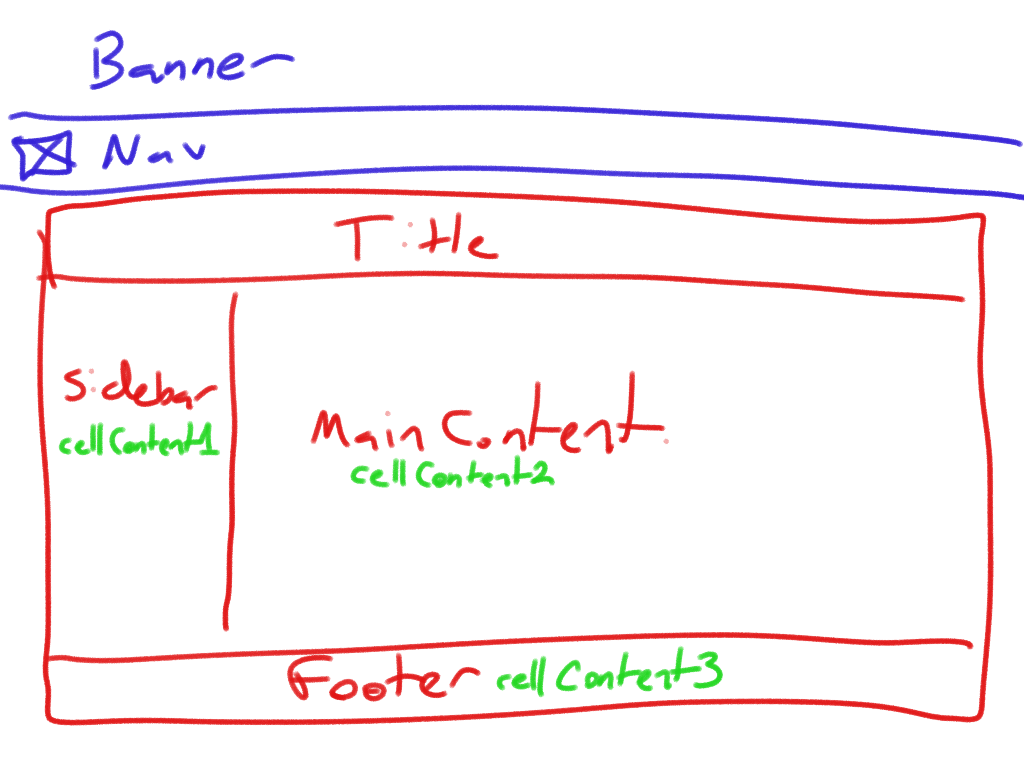 Banner
Nav
Title
Sidebar
cellContent1
Main Content
cellContent2
Footer cellContent3